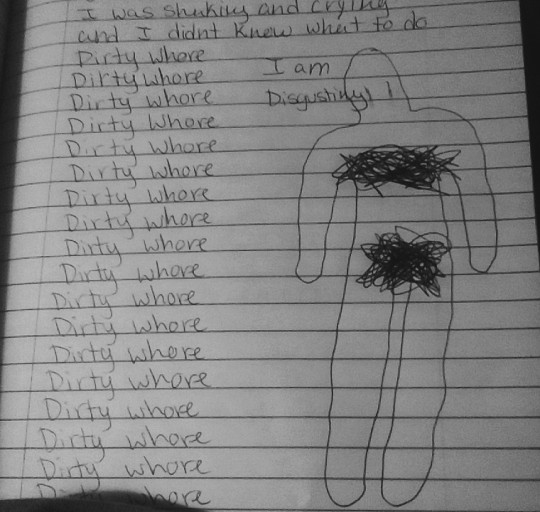 I was shaking and crying
and I didnt know what to do
Dirty whore
Dirty whore
Dirty whore
Dirty whore
Dirty whore
Dirty whore
Dirty whore
Dirty whore
Dirty whore
Dirty whore
Dirty whore
Dirty whore
Dirty whore
Dirty whore
Dirty whore
Dirty whore
Dirty whore
Dirty whore
I am
Disgusting!!